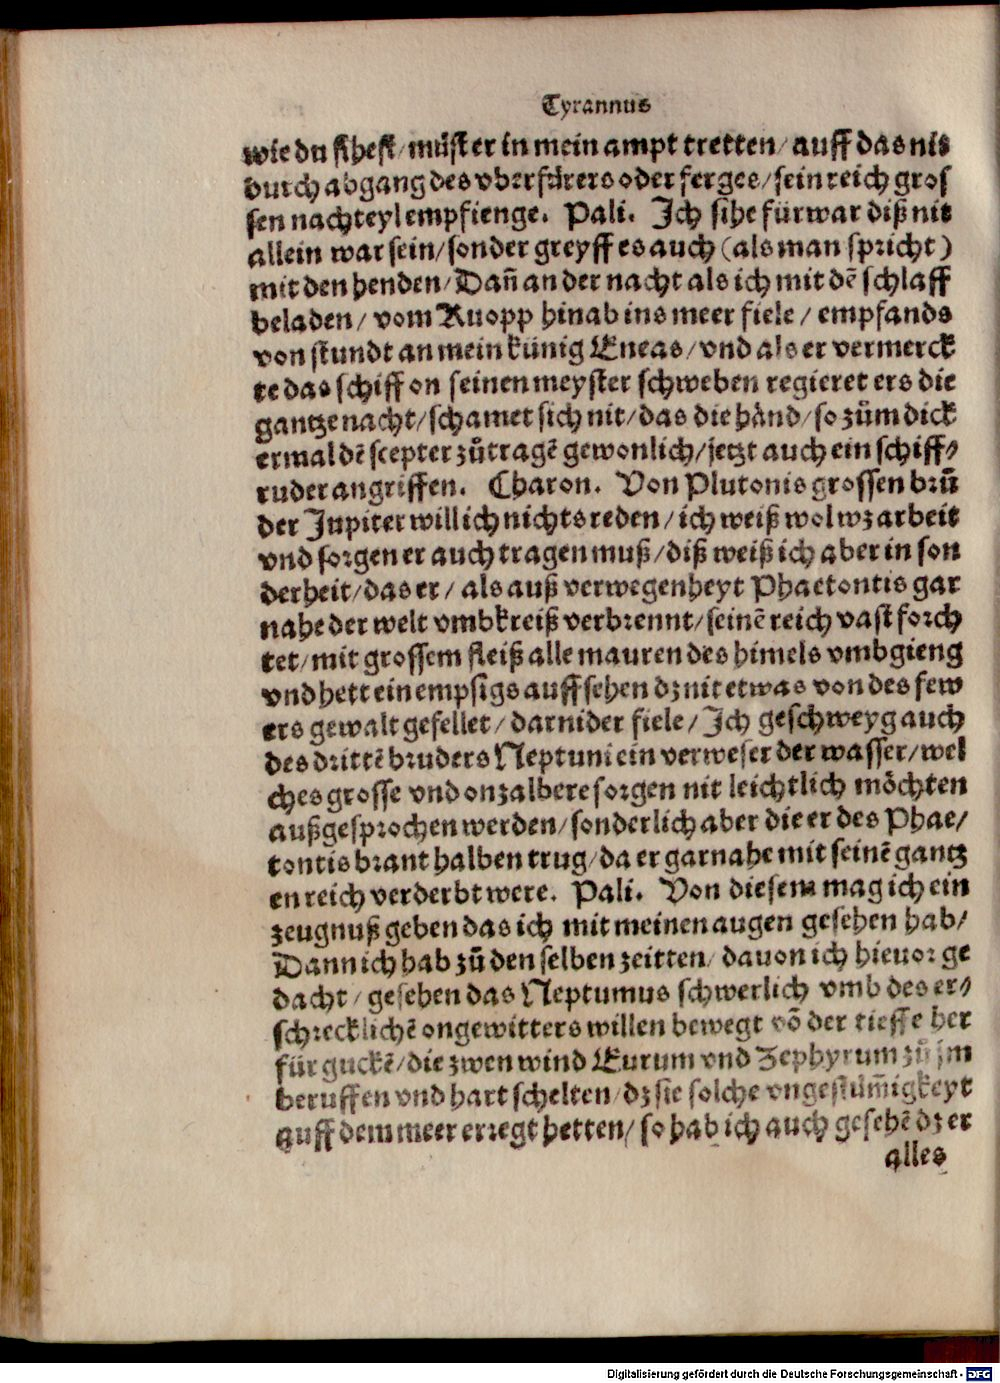 Tyrannus
wie du sihest/ müst er in mein ampt tretten/ auff das nit
durch abgang des vberfürers oder ferges/ sein reich gros
sen nachteyl empfienge. Pali. Ich sihe fürwar diß nit
allein war sein/ sonder greyff es auch (als man spricht)
mit den henden/ Dañ an der nacht als ich mit dẽ schlaff
beladen/ vom Ruopp hinab ins meer fiele/ empfands
von stundt an mein künig Eneas/ vnd als er vermerck
te das schiff on seinen meyster schweben regieret ers die
gantze nacht/ schamet sich nit/ das die händ/ so zům dick
ermal dẽ scepter zůtragẽ gewonlich/ jetzt auch ein schiff⸗
ruder angriffen. Charon. Von Plutonis grossen brů
der Jupiter will ich nichts reden/ ich weiß wol wz arbeit
vnd sorgen er auch tragen muß/ diß weiß ich aber in son
derheit/ das er/ als auß verwegenheyt Phaetontis gar
nahe der welt vmbkreiß verbrennt/ seinẽ reich vast forch
tet/ mit grossem fleiß alle mauren des himels vmbgieng
vnd hett ein empsigs auffsehen dz nit etwas von des few
ers gewalt gefellet/ darnider fiele/ Ich geschweyg auch
des drittẽ bruders Neptuni ein verweser der wasser/ wel
ches grosse vnd onzalbere sorgen nit leichtlich möchten
außgesprochen werden/ sonderlich aber die er des Phae/
tontis brant halben trug/ da er gar nahe mit seinẽ gantz
en reich verderbt were. Pali. Von diesem mag ich ein
zeugnuß geben das ich mit meinen augen gesehen hab/
Dann ich hab zů den selben zeitten/ dauon ich hieuor ge
dacht/ gesehen das Neptumus schwerlich vmb des er⸗
schrecklichẽ ongewitters willen bewegt võ der tieffe her
für guckẽ/ die zwen wind Eurum vnd Zephyrum zů jm
beruffen vnd hart schelten/ dz sie solche vngestüm̃igkeyt
auff dem meer erregt hetten/ so hab ich auch gesehẽ dz er
alles
Digitalisierung gefördert durch die Deutsche Forschungsgemeinschaft - DFG